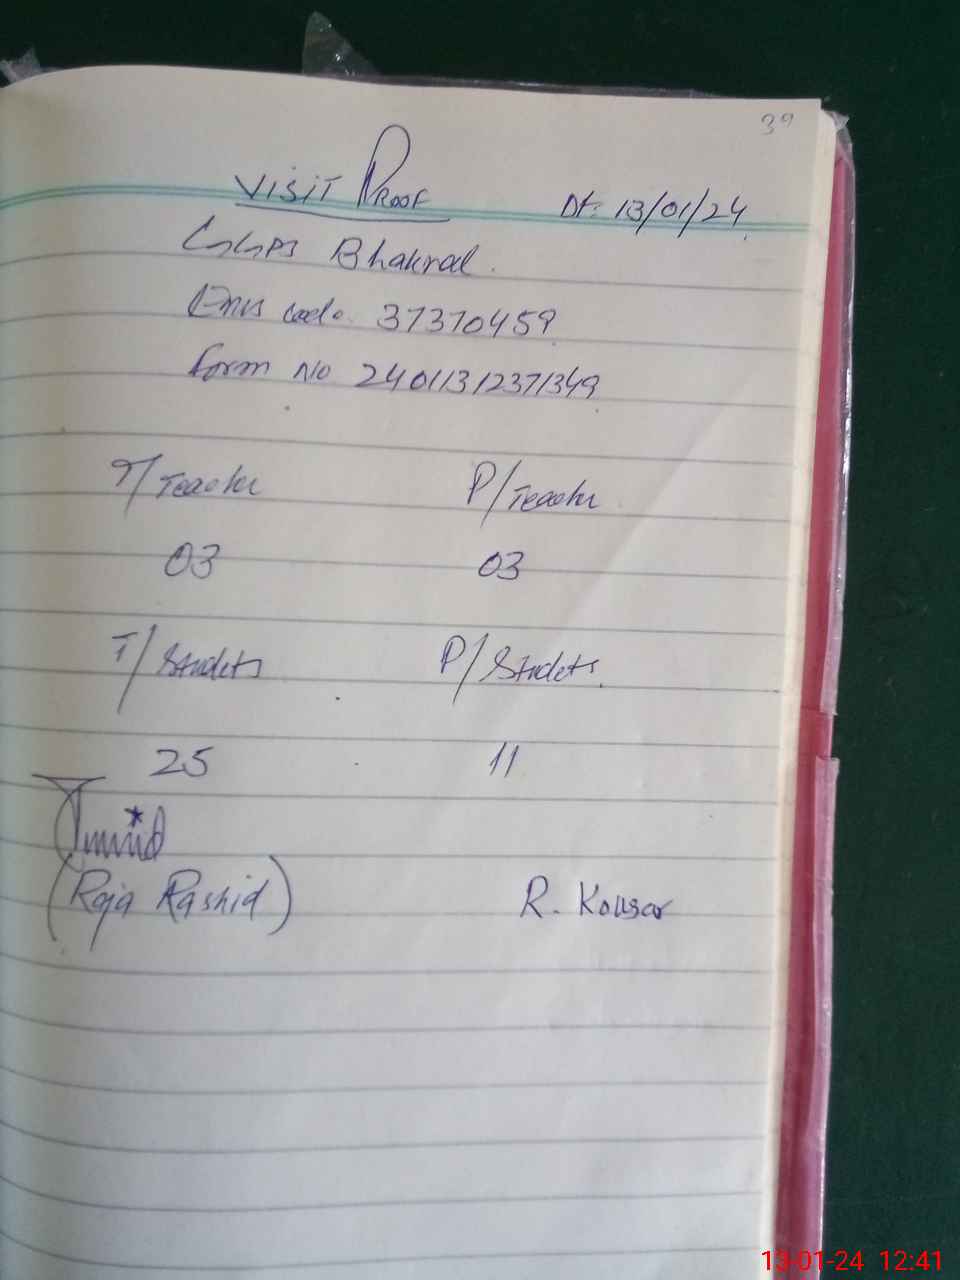 39
VISIT PROOF Dt: 13/01/24
GGPS Bhakral.
Emis code. 37370459
Form No 24011312371349
T/Teacher P/Teacher
03 03
T/Students P/Students
25 11
(Raja Rashid) R. Kousar
13-01-24 12:41